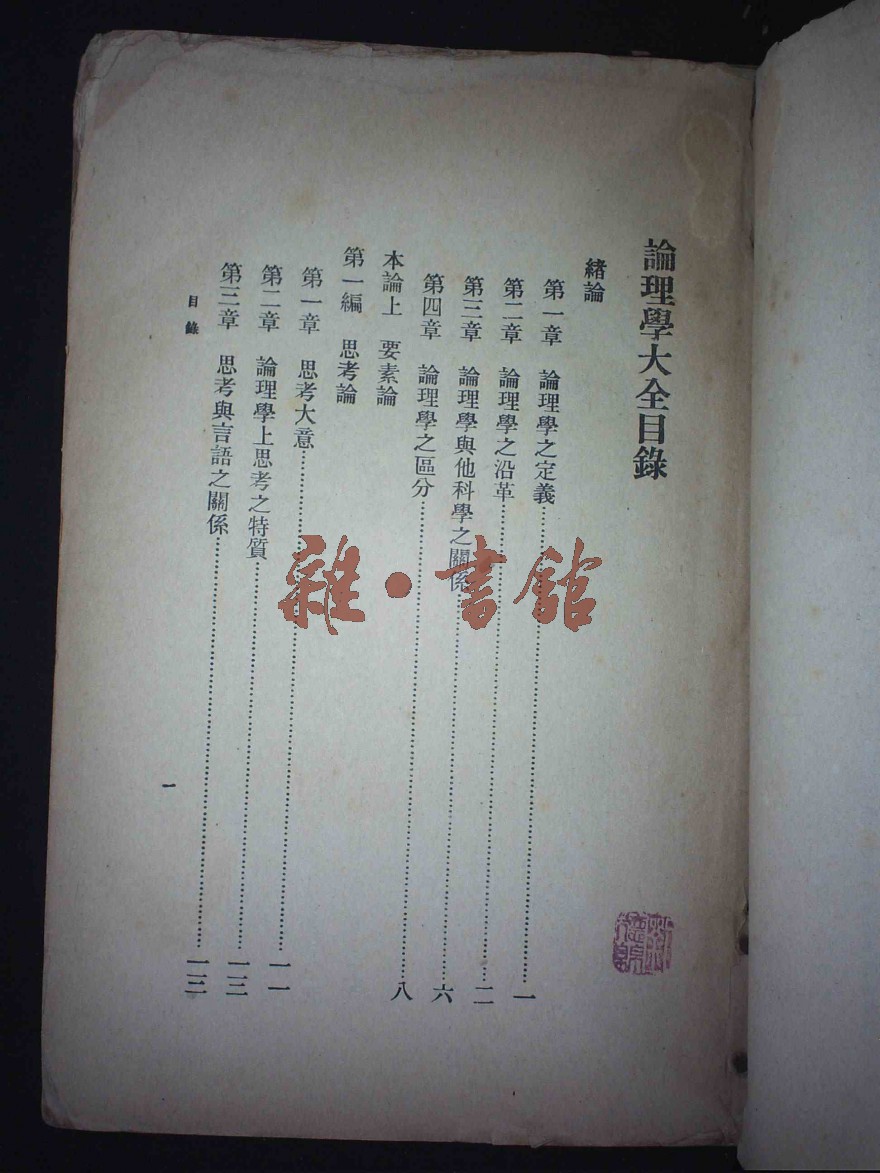 論理學大全目錄
緒論
第一章 論理學之定義……一
第二章 論理學之沿革……二
第三章 論理學與他科學之關係……六
第四章 論理學之區分……八
本論上 要素論
第一編 思考論
第一章 思考大意……一一
第二章 論理學上思考之特質……一三
第三章 思考與言語之關係……一三
目錄
一
雜·書館